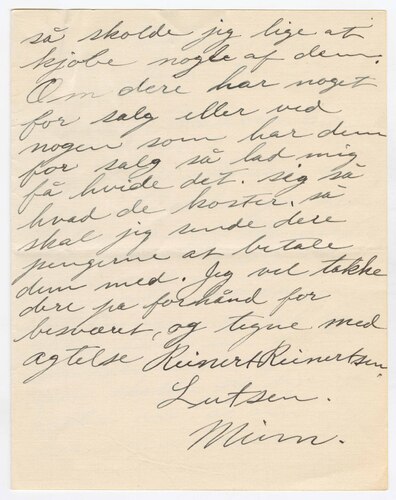 så skolde jeg lige at
kjøbe nogle af dem.
Om dere har noget
for salg eller ved
nogen som har dem
for salg så lad mig
få hvide det. sig så
hvad de koster. så
skal jeg sende dere
pengerne at betale
dem med. Jeg vel takke
dere på forhånd for
besværet, og tegne med
agtelse Reinert Reinertsen.
Lutsen.
Minn.